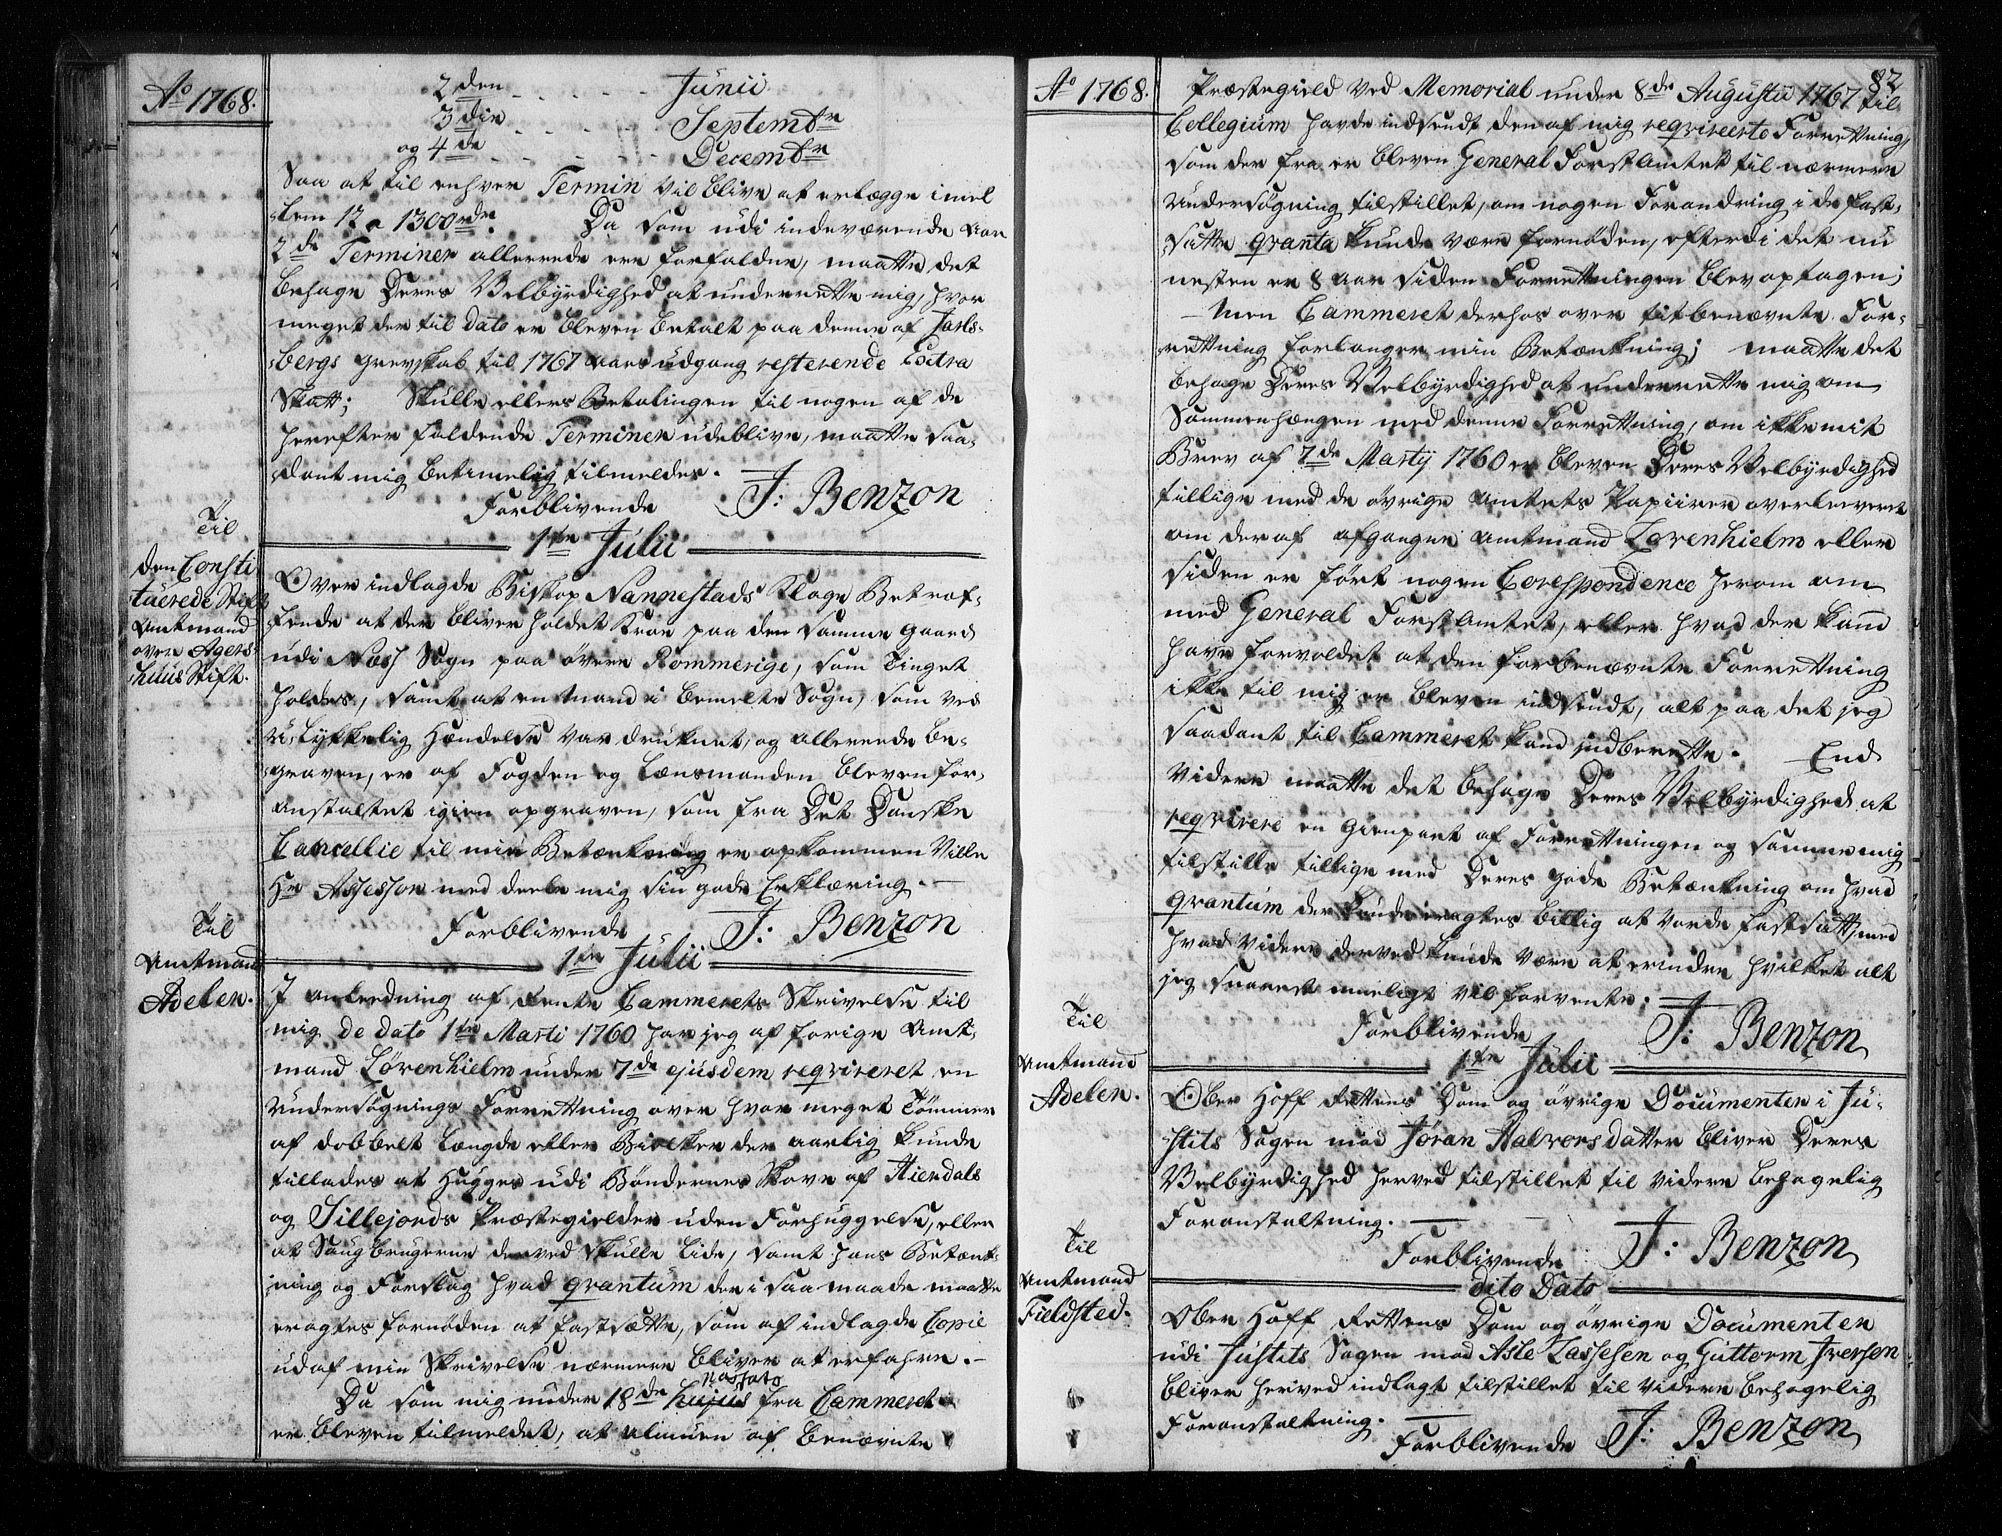 Ao 1768.
2den - - - - - Junii
3die - - - - - Septembr
og 4de - - - - - Decembr
Saa at til enhver Termin vil blive at erlægge imel
lem 12 a 1300rdr. Da som udi indeværende Aar
2de Terminer allerede ere forfaldne, maatte det
behage Deres Velbyrdighed at underrette mig, hvor
meget der til dato er bleven betalt paa denne af Jarls-
bergs Grevskab til 1767 Aars udgang resterende Extra
Skatt; Skulle ellers Betalingen til nogen af de
herefter faldende Terminer udeblive, maatte saa-
dant mig betimelig tilmeldes.
Forblivende J: Benzon
1te Julii
Til
den Consti
tuerede Stift
Amtmand
over Agers-
huus Stift.
Over indlagde Biskop Nannestads Klage Betref-
fende at der bliver holdet Kroe paa den samme Gaard
udi Næss Sogn paa øvere Rommerige, som Tinget
holdes, samt at en Mand i bemelte Sogn, som ved
u-lykkelig Hændelse var druknet, og allereede be-
graven, er af Fogden og Lænsmanden bleven for-
anstaltet igien opgraven, som fra Det Danske
Cancellie til min Betænkning er opkommen Ville
Hr Assessor med deele mig sin gode Erklæring.
Forblivende J: Benzon
1te Julii
Til
Amtmand
Adelen.
I anledning af Rente Cammerets Skrivelse til
mig de dato 1te Marti 1760 har jeg af forige Amt-
mand Løvenhielm under 7de ejusdem reqvireret en
Undersøgnings Forrettning over hvor meget Tømmer
af dobbelt Længde eller Bielker der aarlig kunde
tillades at Hugges udi Bøndernes Skove af Hiendals
og Sillejords Præstegielder uden Forhuggelse, eller
at Saugbrugerne derved skulle lide, samt hans Betænk-
ning og Forslag hvad qvantum der i saa maade maatte
eragtes fornøden at fastsætte, som af indlagde Copie
udaf min Skrivelse nærmere bliver at erfahre.-
passato
Da som mig under 18de hujus fra Cammeret
er bleven tilmeldet, at Almuen af benævnte
Ao 1768.
82
Præstegield ved Memorial under 8de Augusti 1767 til
Collegium havde indsendt den af mig reqvireerte Forrettning,
som der fra er bleven General Forst Amtet til nærmere
Undersøgning tilstillet, om nogen Forandring i de fast-
satte qvanta kunde være fornøden, efterdi det nu
nesten er 8 aar siden Forrettningen blev optagen;
- Men Cammeret derhos over titbenævnte For-
rettning forlanger min Betænkning; maatte det
behage Deres Velbyrdighed at underrette mig om
Sammenhængen med denne Forrettning, om ikke mit
Brev af 7de Martij 1760 er bleven Deres Velbyrdighed
tillige med de øvrige Amtets Papiirer overleeveret
om der af afgangne Amtmand Løvenhielm eller
siden er ført nogen Corespondence herom om
med General Forst Amtet, eller hvad der kand
have forvoldet at den forbenævnte Forrettning
ikke til mig er bleven indsendt, alt paa det jeg
saadant til Cammeret kand indberette. End
videre maatte det behage Deres Velbyrdighed at
reqvirere en Gienpart af Forrettningen og samme mig
tilstille tillige med Deres gode Betænkning om hvad
qvantum der kunde eragtes billig at vorde fastsatt, med
hvad videre derved kunde være at erindre hvilket alt
jeg snarest mueligt vil forvente.
Forblivende J: Benzon
1te Julii
Til
Amtmand
Adelen.
Ober Hoff Rettens Dom og øvrige Documenter i Ju-
stits Sagen mod Jøran Halvorsdatter bliver Deres
Velbyrdighed herved tilstillet til videre behagelig
Foranstaltning.
Forblivende J: Benzon
dito Dato
Til
Amtmand
Fieldsted.
Ober Hoff Rettens Dom og øvrige Documenter
udi Justits Sagen mod Asle Lassesen og Guttorm Iversen
bliver herved indlagt tilstillet til videre behagelig
Foranstaltning.
Forblivende J: Benzon